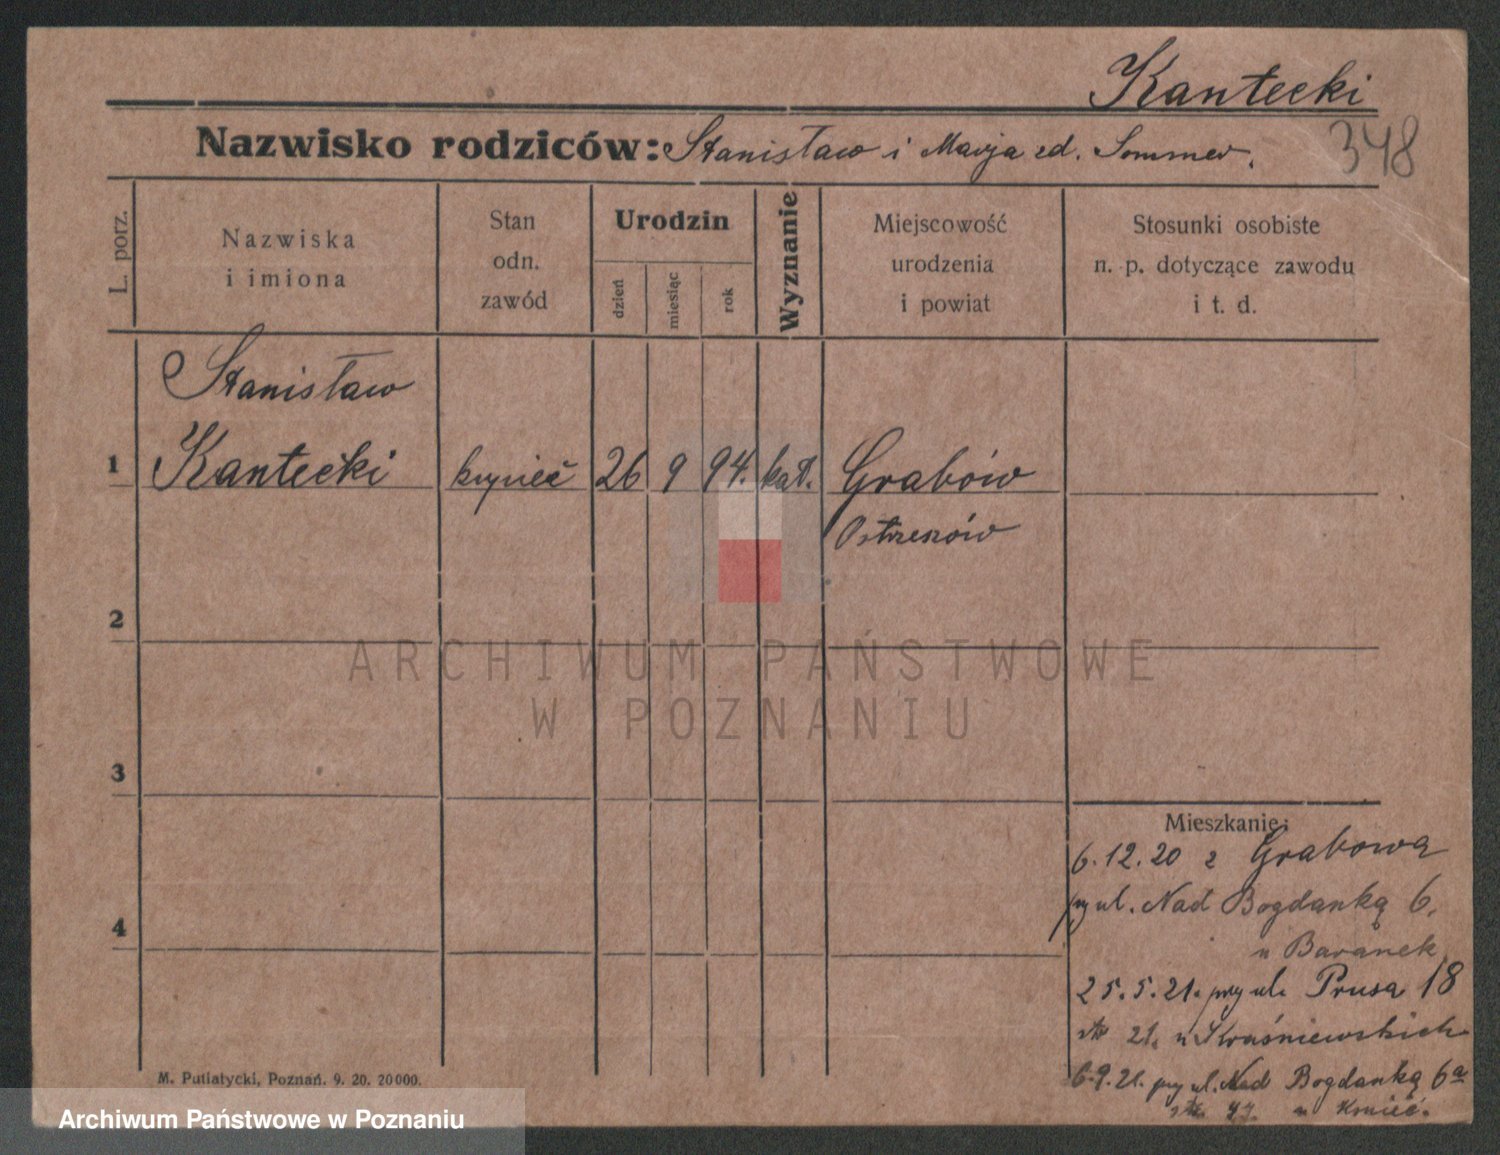 Kantecki
Nazwisko rodziców: Stanisław i Marja zd. Sommer.
348
L. porz.
Nazwiska
i imiona
Stan
odn.
zawód
Urodzin
dzień
miesiąc
rok
Wyznanie
Miejscowość
urodzenia
i powiat
Stosunki osobiste
n. p. dotyczące zawodu
i t. d.
Stanisław
1 Kantecki kupiec 26 9 94. kat. Grabów
Ostrzeszów
2
ARCHIWUM PAŃSTWOWE
W POZNANIU
3
4
Mieszkanie:
6.12.20 z Grabowa
przy ul. Nad Bogdanką 6.
u Baranek
25.5.21. przy ul. Prusa 18
21. u
6.9.21. przy ul. Nad Bogdanką 6a
u Kmieć.
M. Putiatycki, Poznań. 9. 20. 20000.
Archiwum Państwowe w Poznaniu